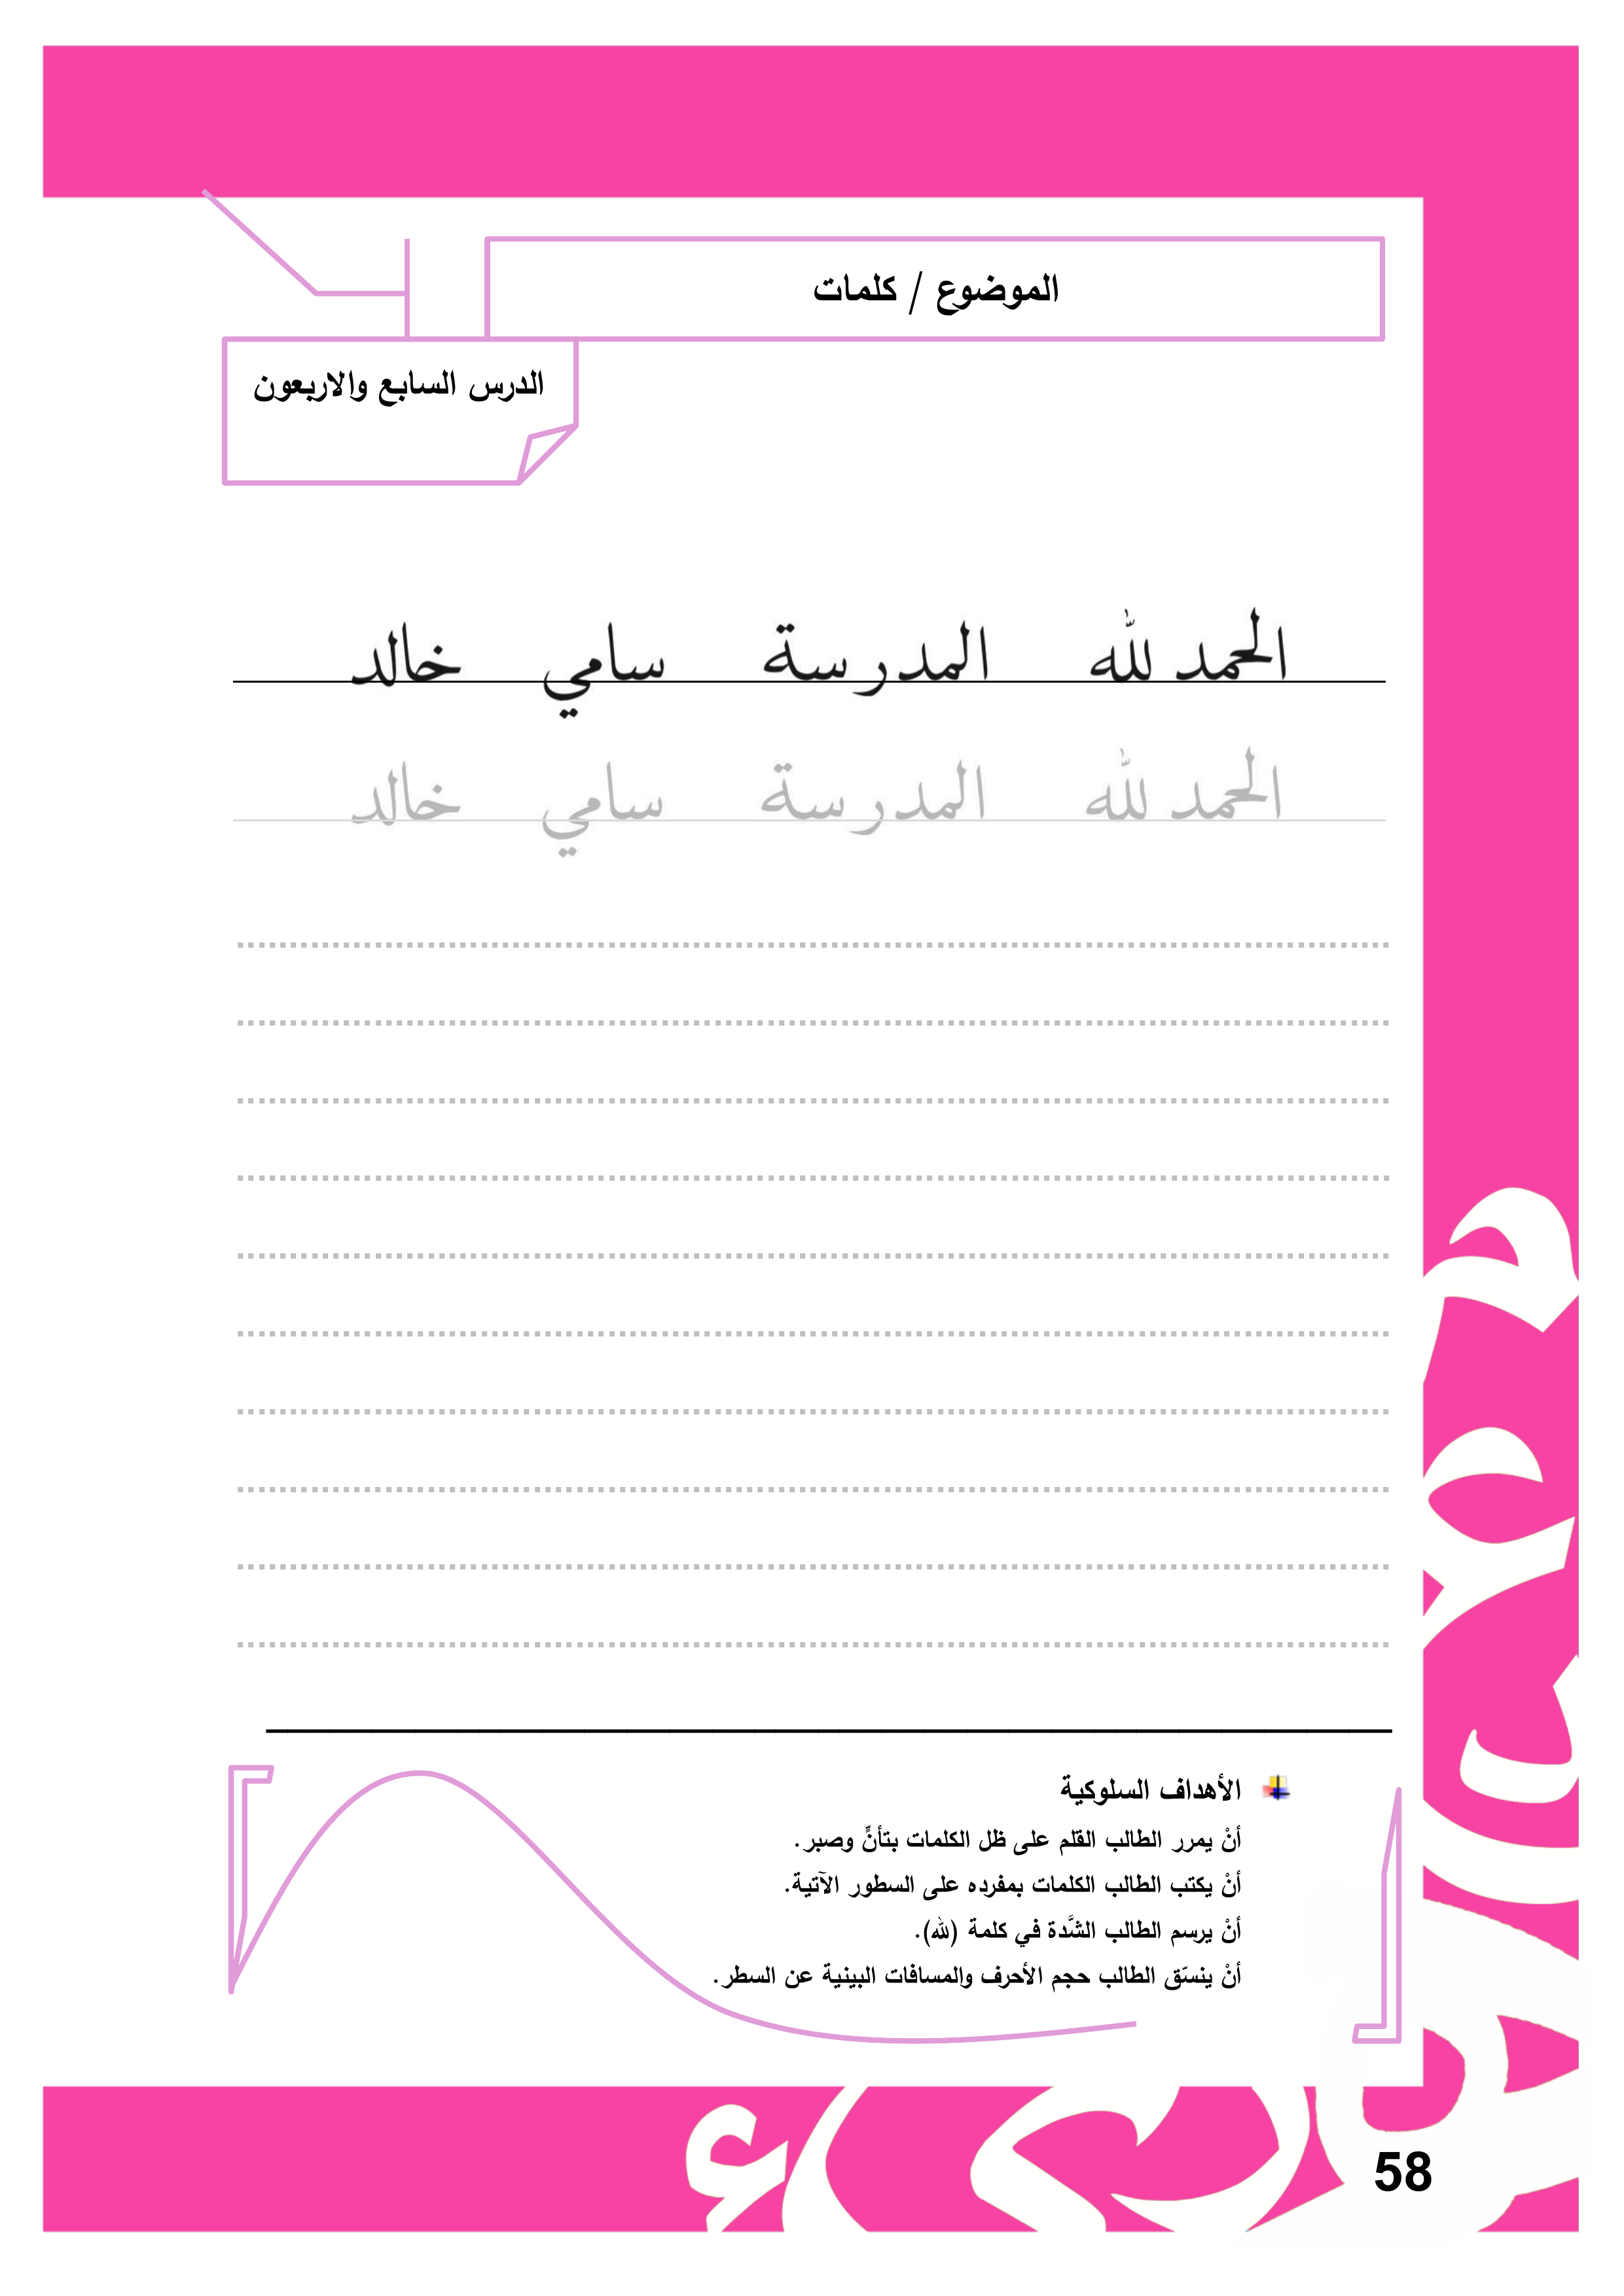 الموضوع / كلمات
الدرس السابع والاربعون
الحمد لله المدرسة سامي خالد
الحمد لله المدرسة سامي خالد
الأهداف السلوكية
أنْ يمرر الطالب القلم على ظل الكلمات بتأنٍّ وصبر.
أنْ يكتب الطالب الكلمات بمفرده على السطور الآتية.
أنْ يرسم الطالب الشَّدة في كلمة (لله).
أنْ ينسّق الطالب حجم الأحرف والمسافات البينية عن السطر.
58